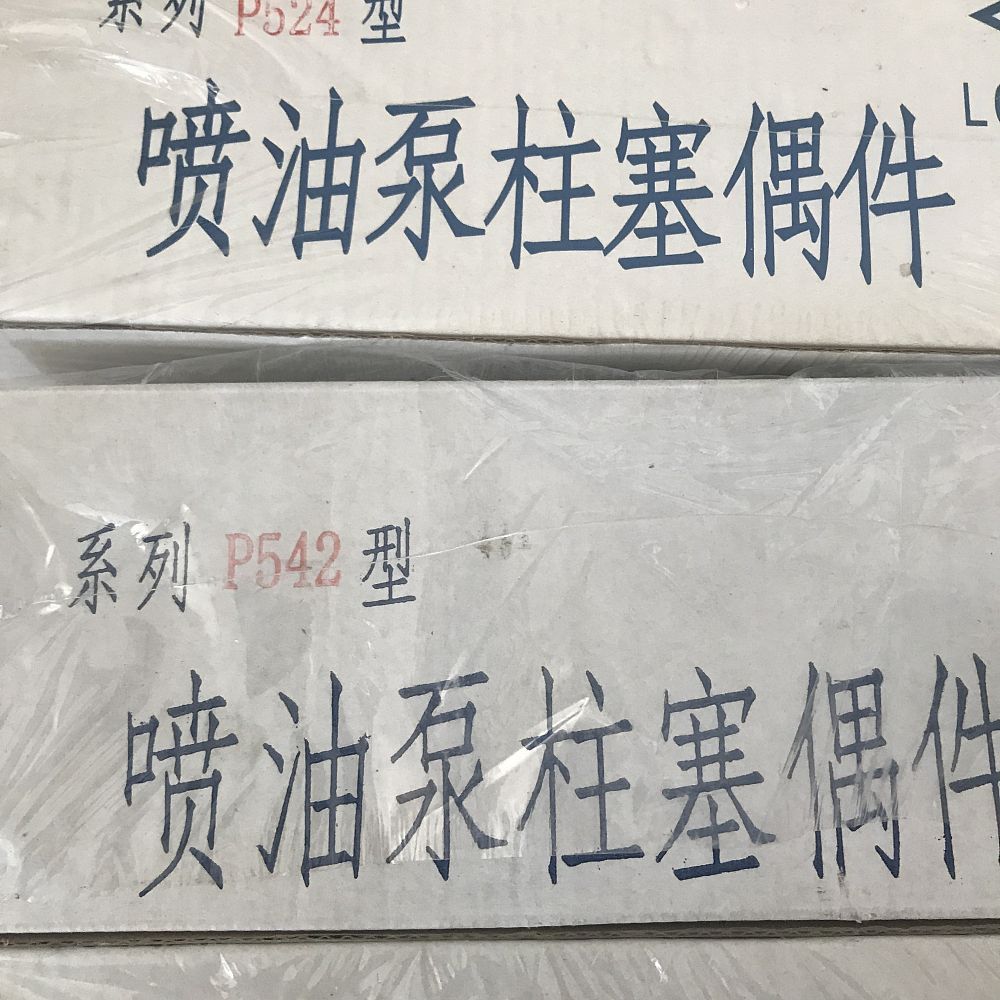 系列 P524 型
喷油泵柱塞偶件
系列 P542 型
喷油泵柱塞偶件